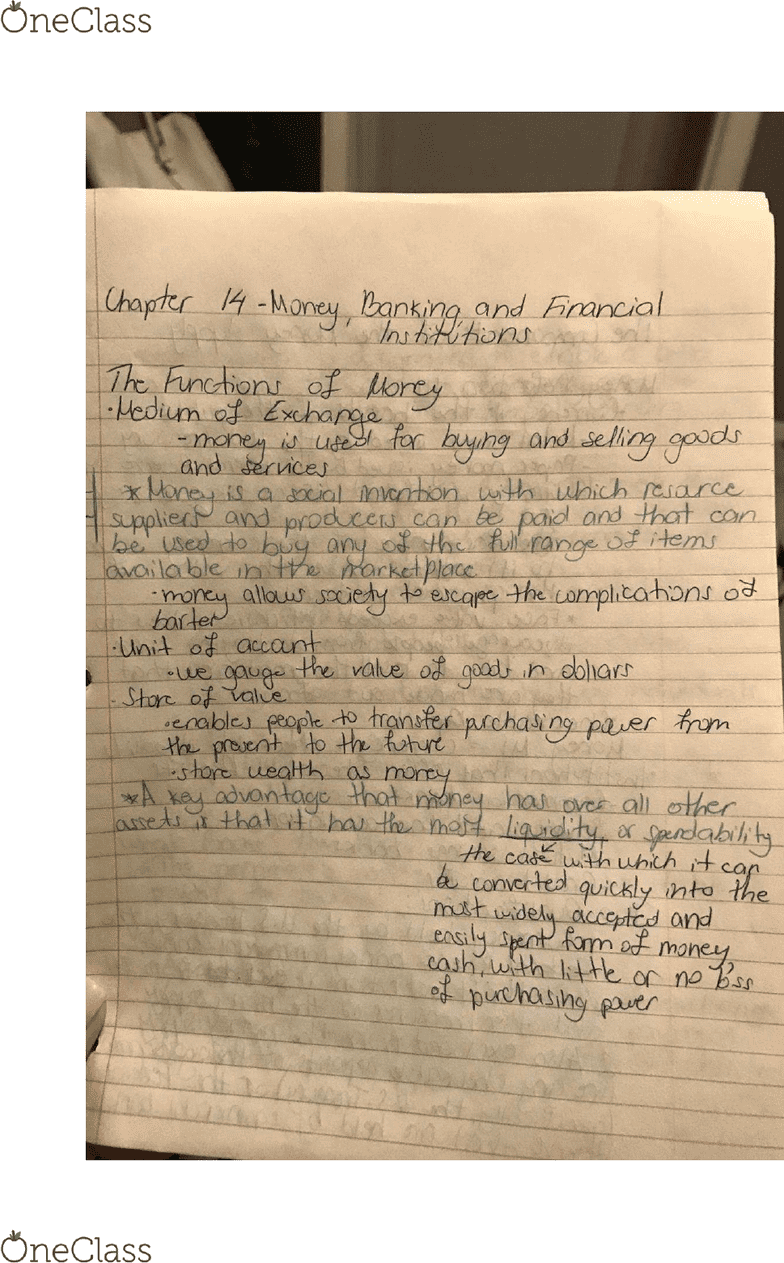 OneClass
Chapter 14 - Money, Banking and Financial
Institutions
The Functions of Money
·Medium of Exchange
-money is used for buying and selling goods
and services
*Money is a social invention with which resource
suppliers and producers can be paid and that can
be used to buy any of the full range of items
available in the marketplace
·money allows society to escape the complications of
barter
·Unit of account
·we gauge the value of goods in dollars
·Store of value
·enables people to transfer purchasing power from
the present to the future
·store wealth as money
*A key advantage that money has over all other
assets is that it has the most liquidity, or spendability
the ease with which it can
be converted quickly into the
most widely accepted and
easily spent form of money,
cash, with little or no loss
of purchasing power
OneClass